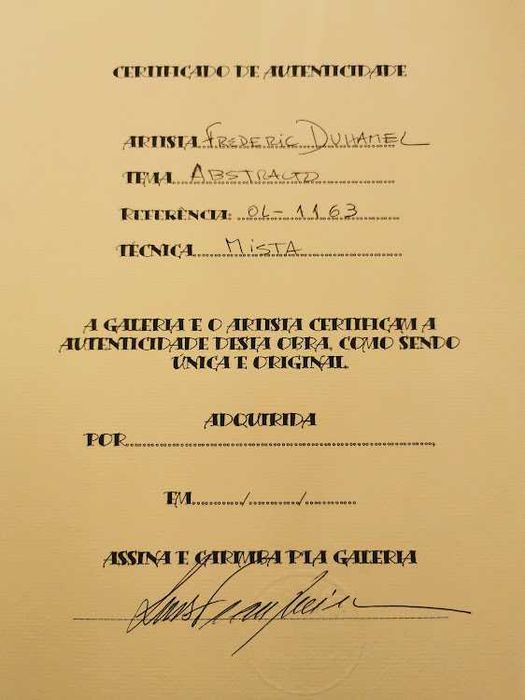 CERTIFICADO DE AUTENTICIDADE
ARTISTA FREDERIC DUHAMEL
TEMA ABSTRACTO
REFERÊNCIA: OL-1163
TÉCNICA MISTA
A GALERIA E O ARTISTA CERTIFICAM A
AUTENTICIDADE DESTA OBRA, COMO SENDO
ÚNICA E ORIGINAL.
ADQUIRIDA
POR
EM / /
ASSINA E CARIMBA P'LA GALERIA